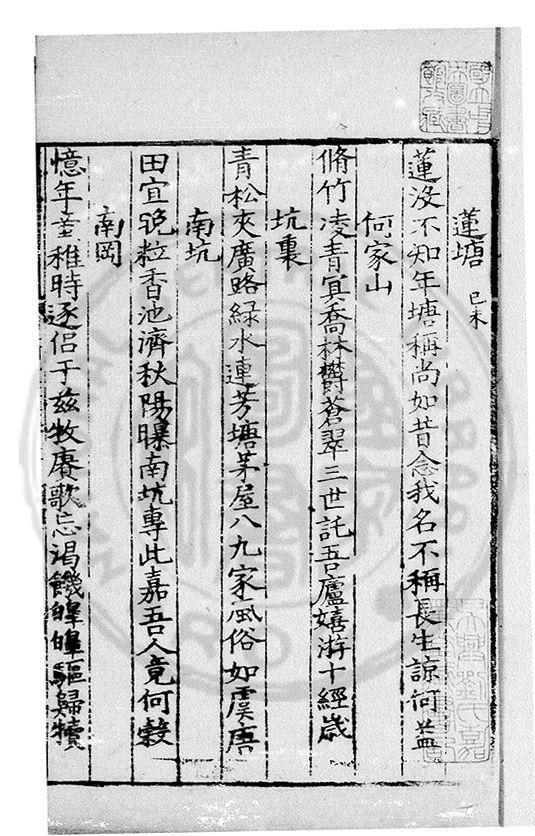 蓮塘 己未
蓮没不知年塘稱尚如昔念我名不稱長生諒何益
何家山
脩竹凌青冥喬林鬱蒼翠三世託吾廬嬉游十經歲
坑裏
青松夾廣路緑水連芳塘茅屋八九家風俗如虞唐
南坑
田宜晚粒香池濟秋陽曝南坑專此嘉吾人竟何榖
南岡
憶年童稚時逐侣于兹牧賡歌忘渴饑皡皡驅歸犢